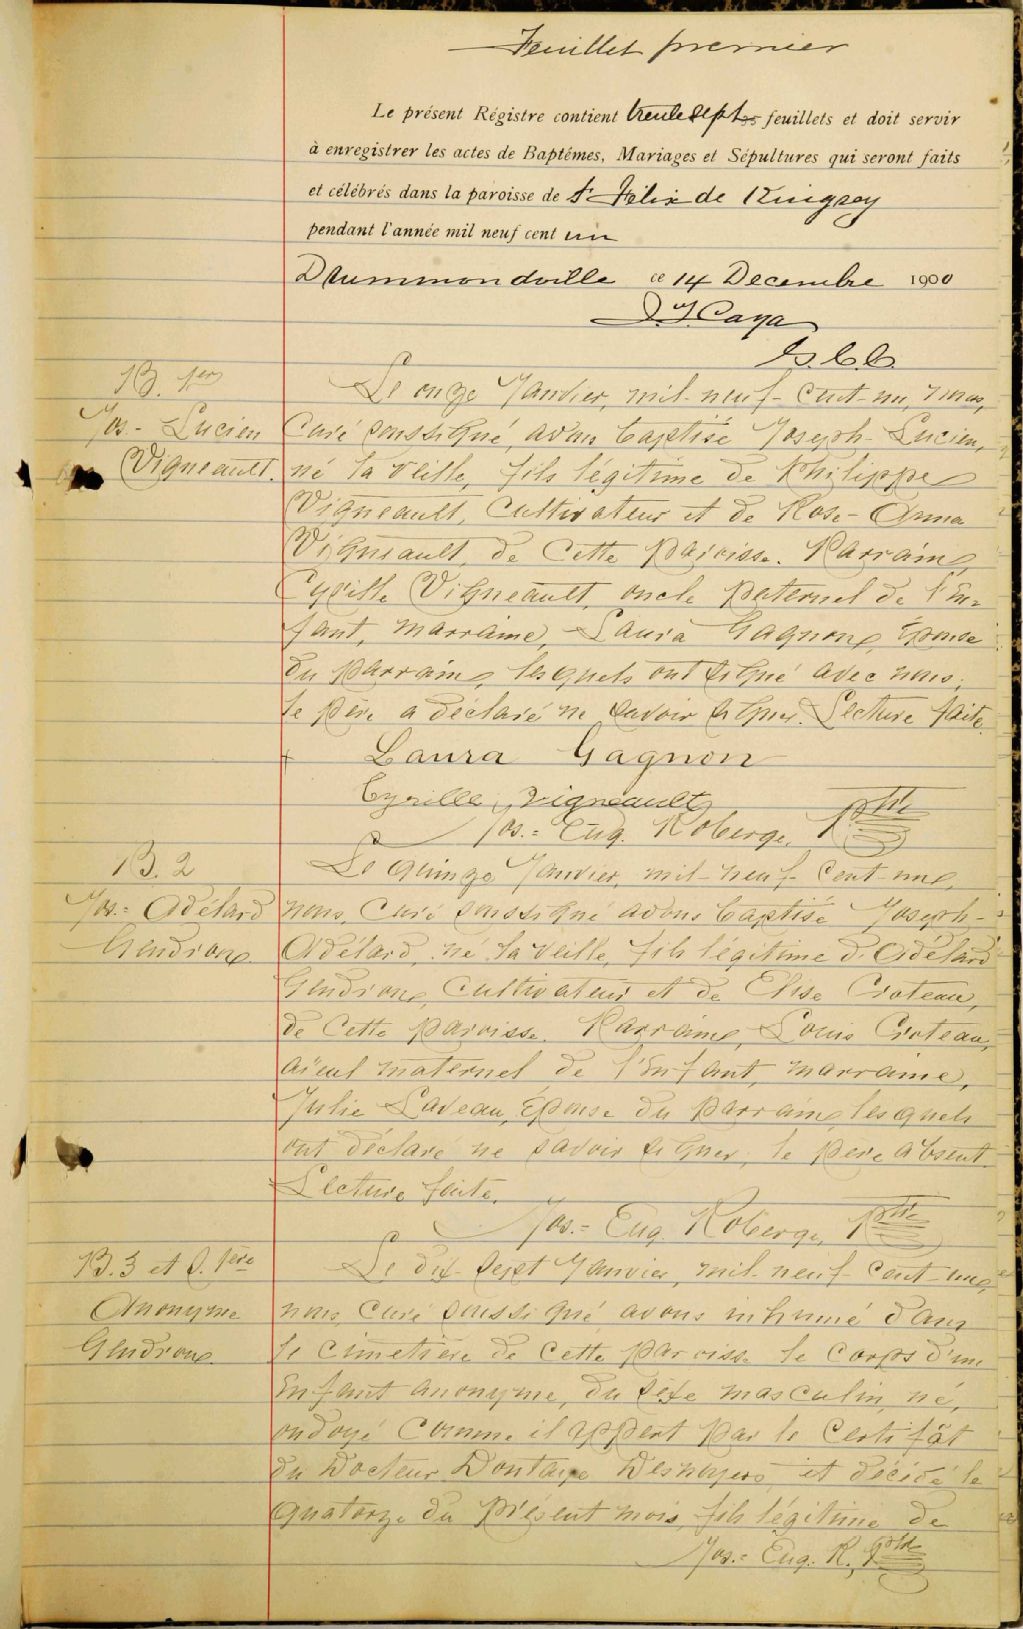 Feuillet premier
Le présent Régistre contient trente sept feuillets et doit servir
à enregistrer les actes de Baptêmes, Mariages et Sépultures qui seront faits
et célébrés dans la paroisse de St Félix de Kingsey
pendant l'année mil neuf cent un
Drummondville ce 14 Decembre 1900
J. T. Caya
G. C. C.
B. 1er
Jos- Lucien
Vigneault.
Le onze Janvier, mil-neuf-cent-un, nous,
Curé soussigné, avons baptisé Joseph-Lucien,
né la veille, fils légitime de Philippe
Vigneault, Cultivateur et de Rose-Anna
Vigneault, de cette paroisse. Parrain,
Cyrille Vigneault, oncle paternel de l'En-
fant, marraine, Laura Gagnon, Épouse
du parrain, lesquels ont signé avec nous,
le père a déclaré ne savoir signer. Lecture faite.
+ Laura Gagnon
Cyrille Vigneault
Jos.= Eug. Roberge, Ptre
B. 2
Jos.= Adélard
Gendron.
Le quinze Janvier, mil-neuf-cent-un,
nous, Curé soussigné avons baptisé Joseph-
Adélard, né la veille, fils légitime d'Adélard
Gendron, Cultivateur et de Elise Croteau,
de cette paroisse. Parrain, Louis Croteau,
aïeul maternel de l'Enfant, marraine,
Julie Laveau, Épouse du parrain, lesquels
ont déclaré ne savoir signer, le père absent.
Lecture faite.
Jos.= Eug. Roberge, Ptre
B. 3 et S. 1ère
Anonyme
Gendron.
Le dix-sept Janvier, mil-neuf-cent-un,
nous, Curé soussigné, avons inhumé dans
le cimetière de cette paroisse le corps d'un
Enfant anonyme, du sexe masculin, né,
ondoyé comme il appert par le certifât
du Docteur Desnoyers, et décédé le
quatorze du présent mois, fils légitime de
Jos.= Eug. R., Ptre